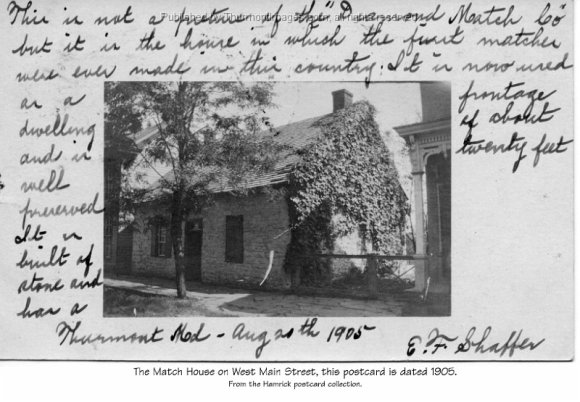 Published by Thurmontimages.com, all rights reserved
This is not a picture of the "Diamond Match Co"
but it is the house in which the first matches
were ever made in this country. It is now used
as a
dwelling
and is
well
preserved
It is
built of
stone and
has a
frontage
of about
twenty feet
Thurmont Md - Aug 20th 1905
E. F. Shaffer
The Match House on West Main Street, this postcard is dated 1905.
From the Hamrick postcard collection.